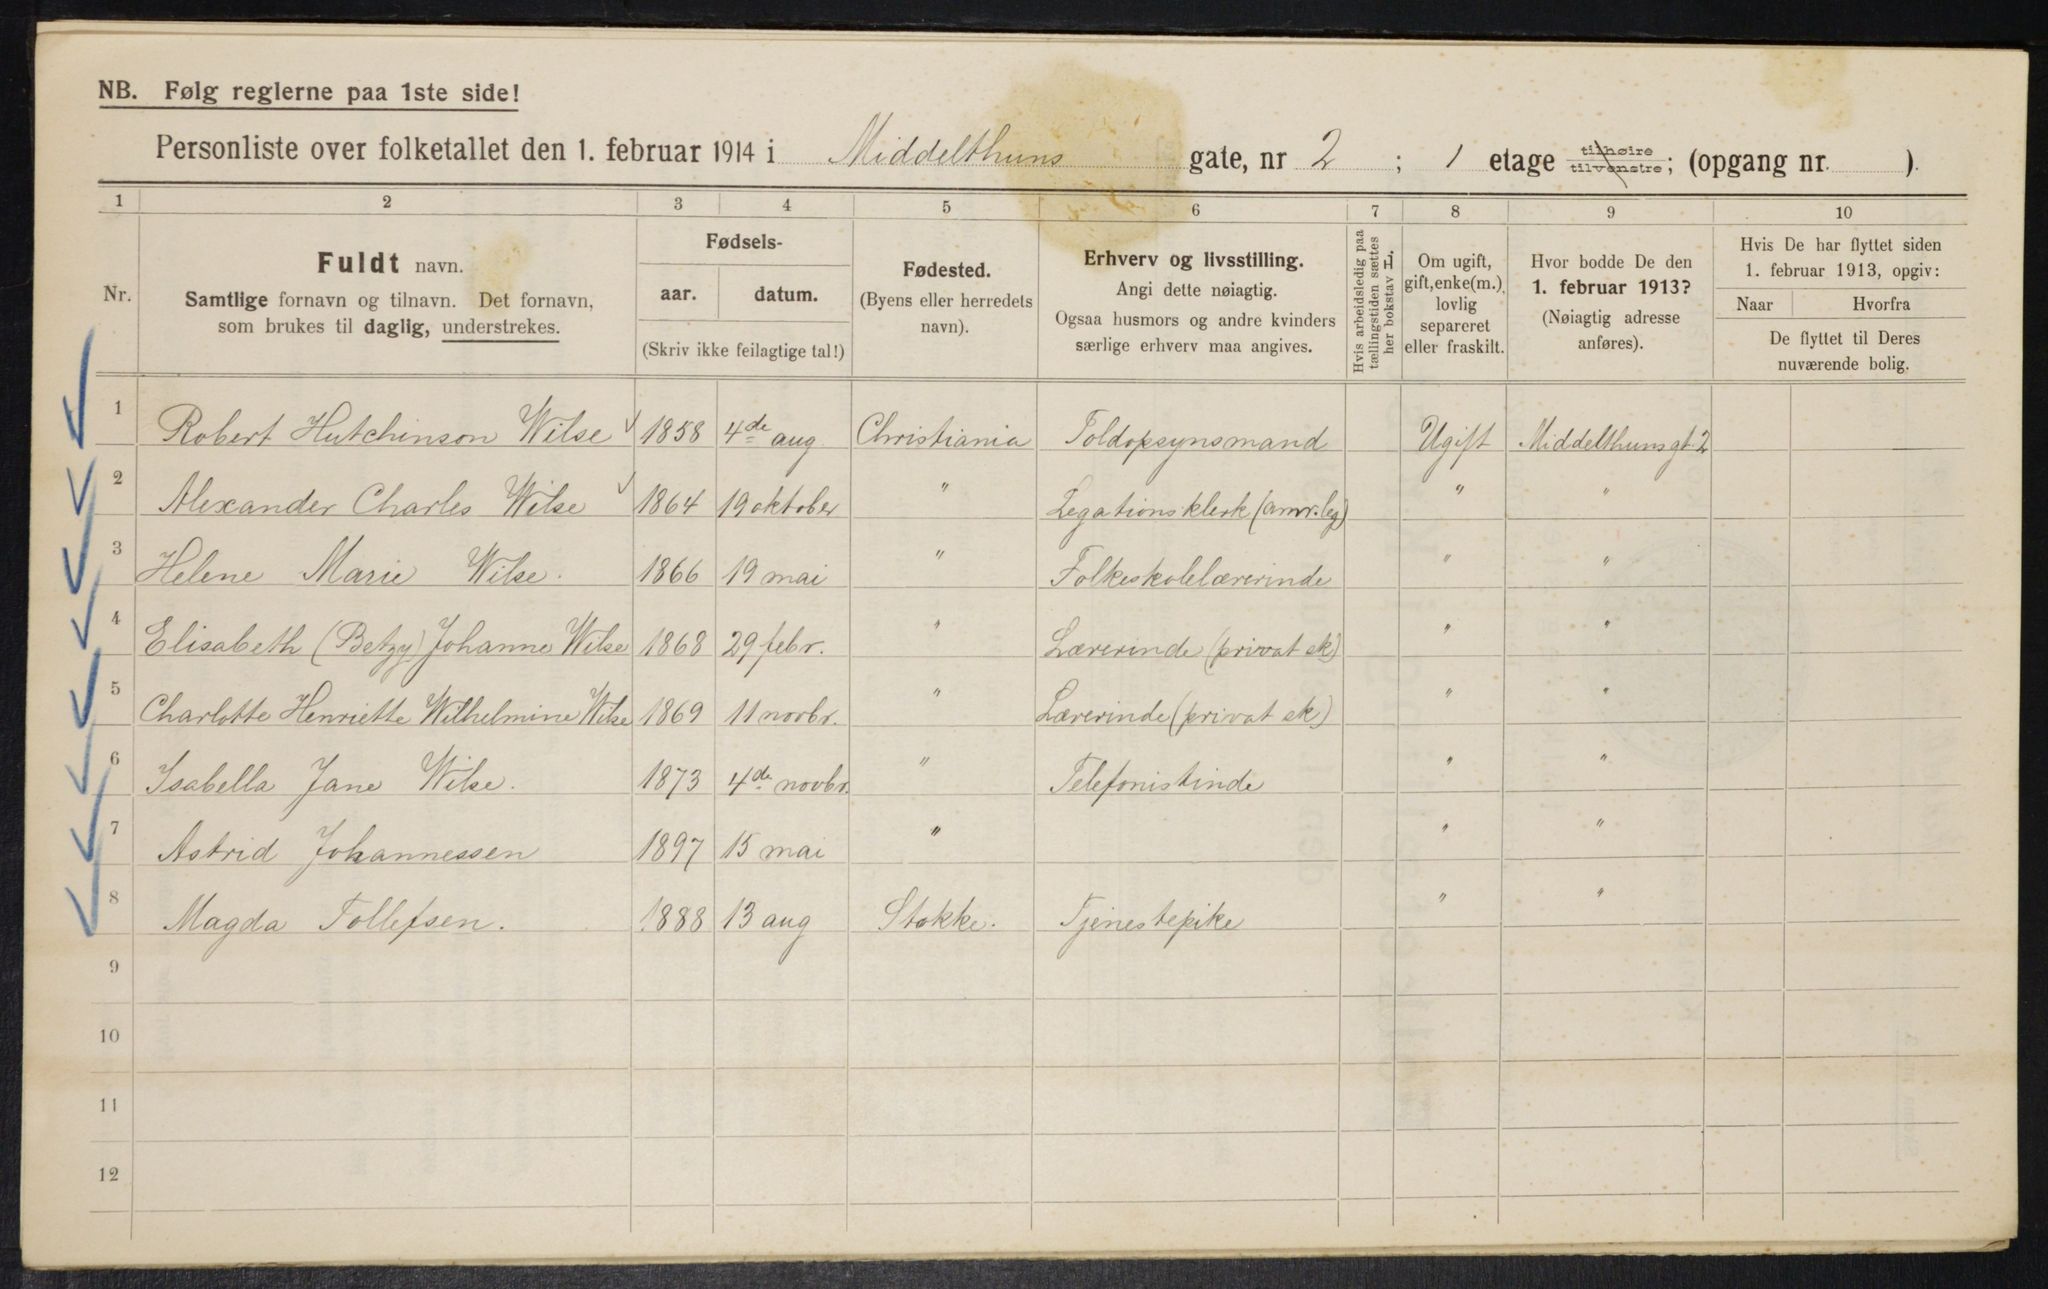 NB. Følg reglerne paa 1ste side!
Personliste over folketallet den 1. februar 1914 i Middelthuns gate, nr 2 ; 1 etage tilhøire tilvenstre; (opgang nr. ).
1 2 3 4 5 6 7 8 9 10
Nr.
Fuldt navn.
Samtlige fornavn og tilnavn. Det fornavn,
som brukes til daglig, understrekes.
Fødsels-
aar. datum.
(Skriv ikke feilagtige tal!)
Fødested.
(Byens eller herredets
navn).
Erhverv og livsstilling.
Angi dette nøiagtig.
Ogsaa husmors og andre kvinders
særlige erhverv maa angives.
Hvis arbeidsledig paa
tællingstiden sættes
her bokstav L.
Om ugift,
gift, enke(m.),
lovlig
separeret
eller fraskilt.
Hvor bodde De den
1. februar 1913?
(Nøiagtig adresse
anføres).
Hvis De har flyttet siden
1. februar 1913, opgiv:
Naar Hvorfra
De flyttet til Deres
nuværende bolig.
1 Robert Hutchinson Wilse 1858 4de aug. Christiania Toldopsynsmand Ugift Middelthunsgt. 2
2 Alexander Charles Wilse 1864 19 oktober " Legationsklerk (amr. leg) " "
3 Helene Marie Wilse. 1866 19 mai " Folkeskolelærerinde " "
4 Elisabeth (Betzy) Johanne Wilse 1868 29 febr. " Lærerinde (privat sk) " "
5 Charlotte Henriette Wilhelmine Wilse 1869 11 novbr. " Lærerinde (privat sk) " "
6 Isabella Jane Wilse. 1873 4de novbr. " Telefonistinde " "
7 Astrid Johannessen 1897 15 mai " " "
8 Magda Tollefsen. 1888 13 aug Stokke. Tjenestepike " "
9
10
11
12